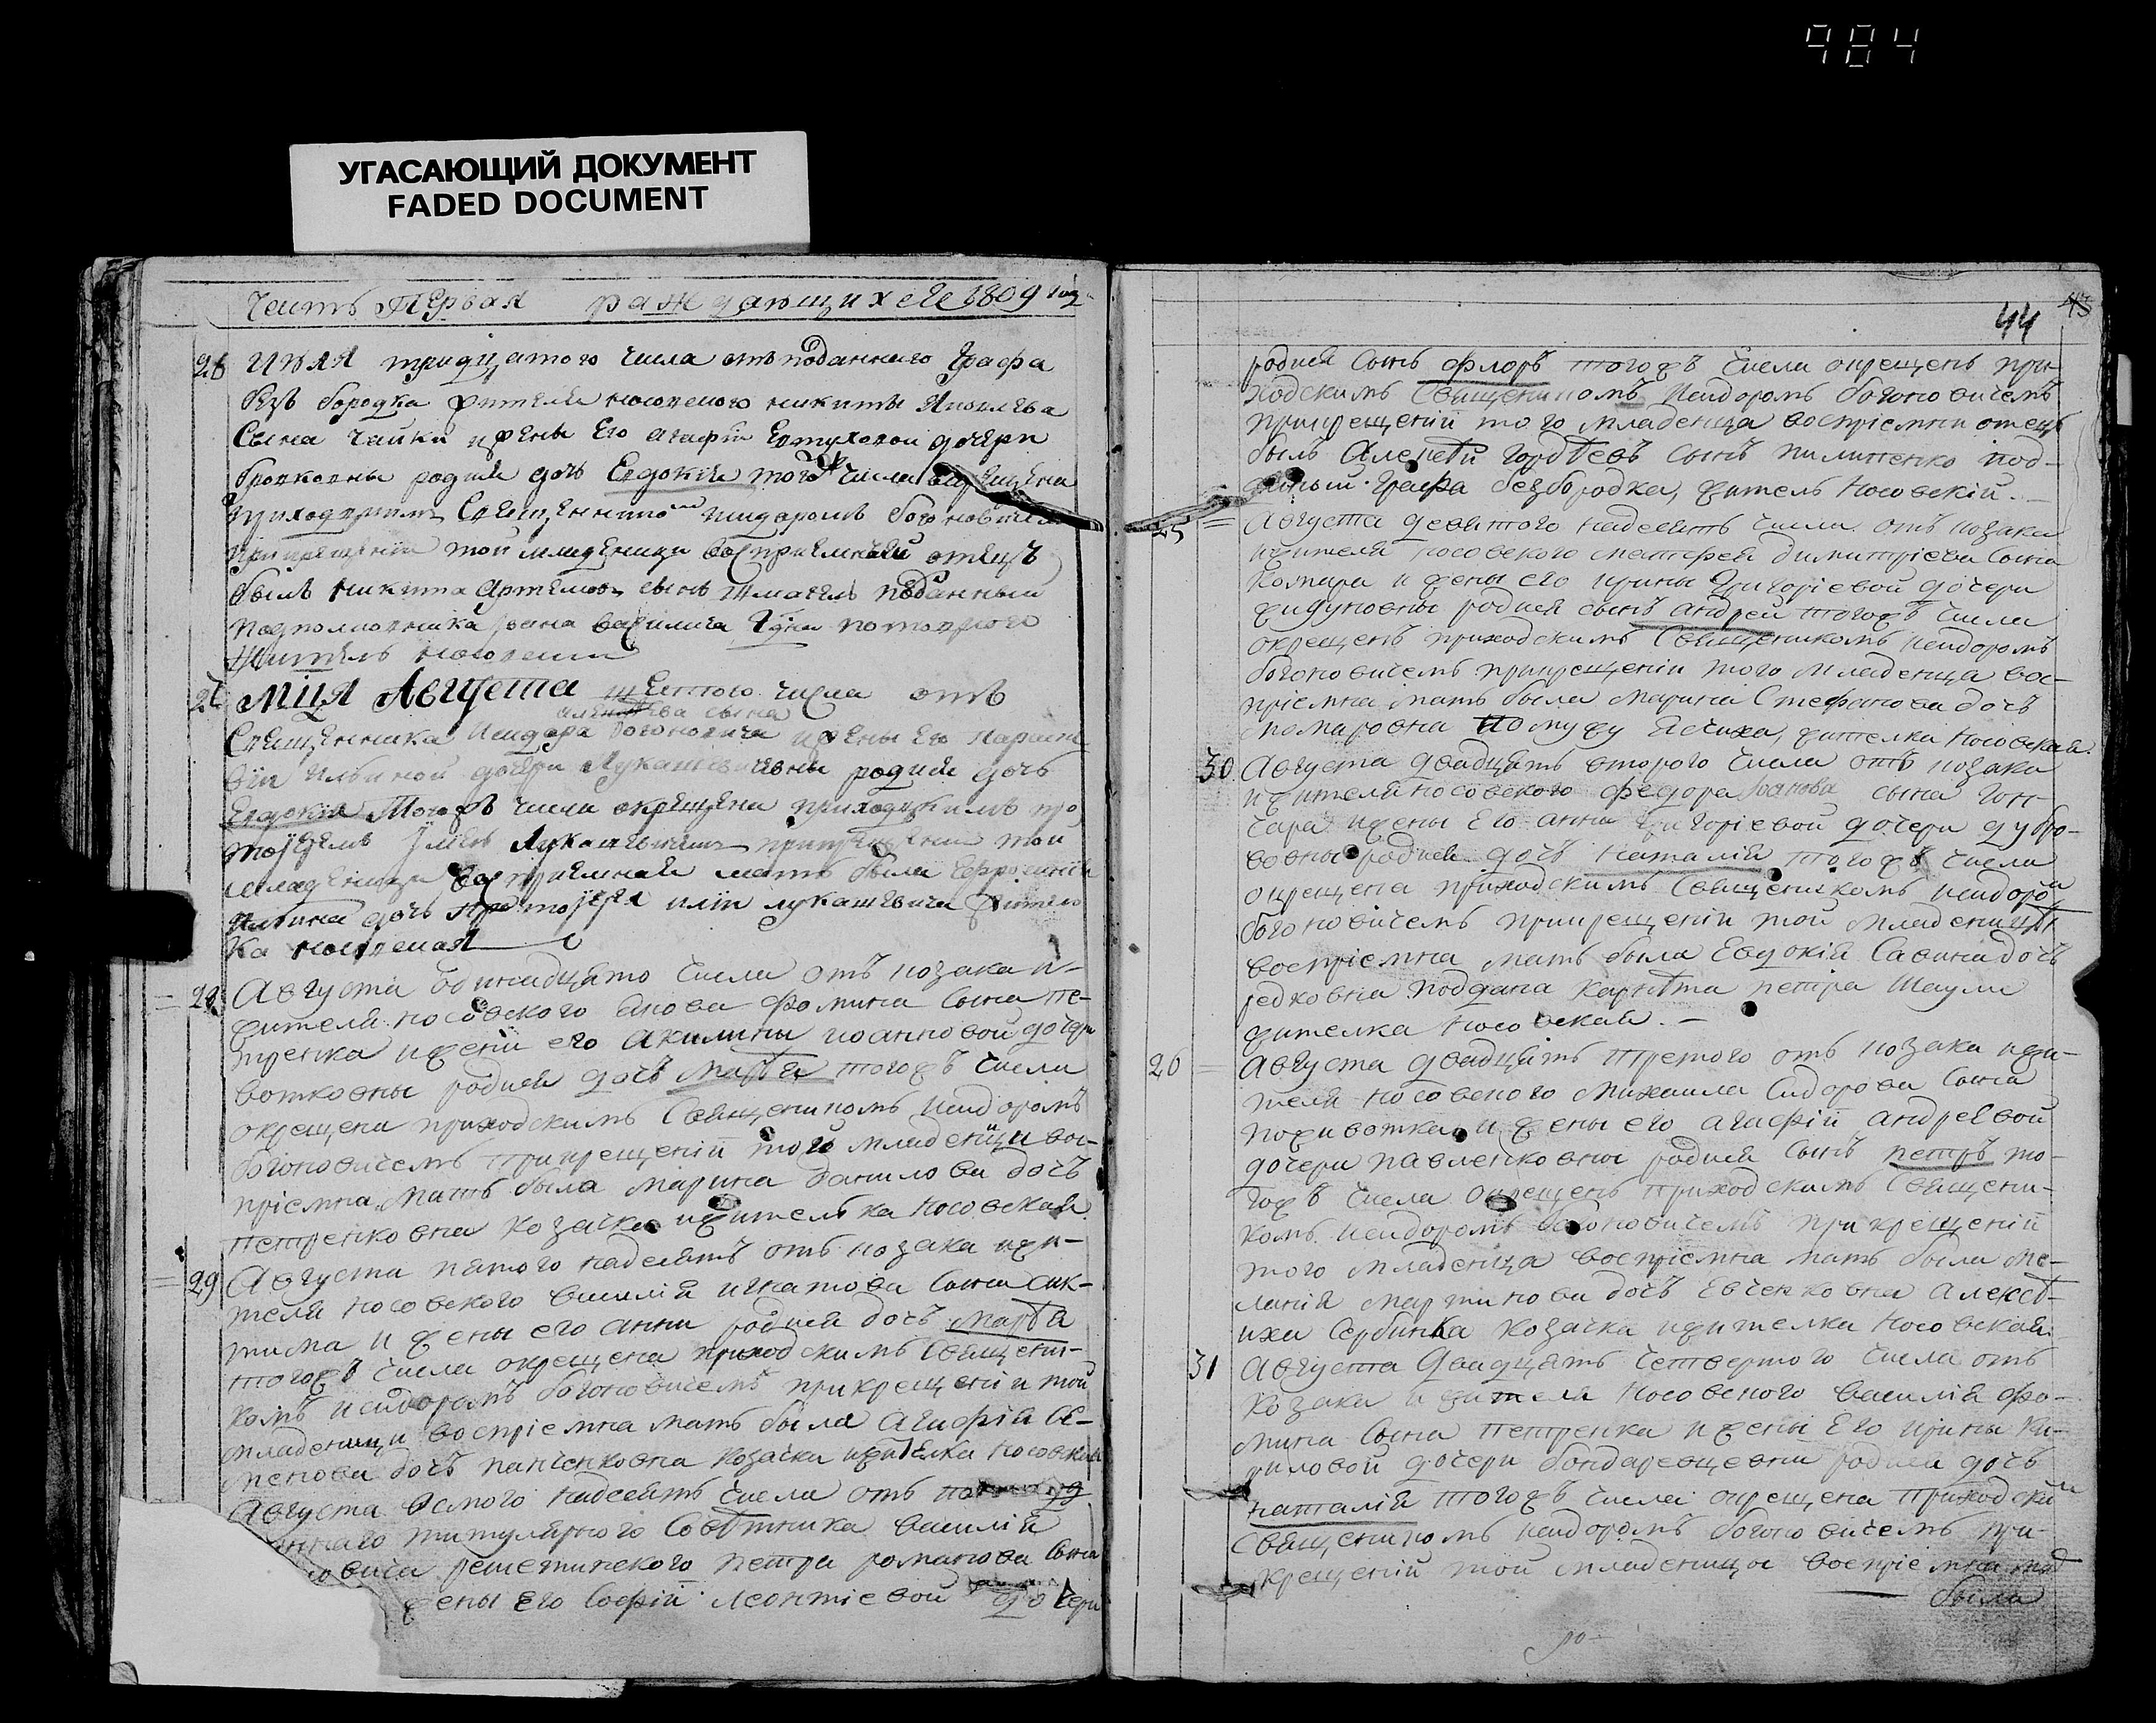 984
УГАСАЮЩИЙ ДОКУМЕНТ
FADED DOCUMENT
Часть Первая раждающихся 1809 года
26 Июля тридцатого числа отъ поданнаго графа
безъ бородка жителя носовского никиты Яковлева
Сына чайки и жены Его агафіи Евтуховой дочери
родися дочь Евдокія тогожъ числа окрещена
приходскимъ Священникомъ Исидоромъ богоновичем
при крещеніи той младеници воспріемный отецъ
былъ никита Артемовъ сынъ поданный
подполковника Ивана василича
житель носовский
МЦА Августа шестого числа отъ
алексѣева сына
Священника Исидора Богоновича и жены Его параске
віи Ильиной дочери Лукашевичевны родися дочь
Евдокія Тогожъ числа окрещена приходскимъ про
тоіереемъ Іліею Лукашевичемъ при крещеніи той
младеници воспріемная мать была Ефросинія
Ильина дочь Протоіерея иліи лукашевича жител
ка носовская
28 Августа одинадцято числа отъ козака и
жителя носовского Фомина Сына пе-
тренка и жены его Акилины иоанновой дочери
вотковны родися дочь Марѳа тогожъ числа
окрещена приходскимъ Священикомъ Исидоромъ
богоновичемъ при крещеніи того младеници вос-
пріемна мать была марина данилова дочь
петренковна козачка и жителька Носовская
29 Августа пятого надесять отъ козака и жи-
теля носовского василія игнатова Сына Сик-
тима и жены его анны родися дочь Марѳа
тогожъ числа окрещена приходскимъ Священи-
комъ исидоромъ богоновичемъ при крещеніи той
младеници воспріемна мать была Агафія Се-
менова дочь панченковна козачка и жителка Носовская
Августа осмого надесять числа отъ под
аннаго титулярного Совѣтника василія
овича решетинского петра романова Сына
жены его Софіи Леонтіевой дочери
44
43
родися Сынъ Флоръ тогожъ числа окрещенъ при-
ходскимъ Священикомъ Исидоромъ богоновичемъ
при крещеніи того младенца воспріемни отецъ
былъ Алексѣй Гордѣевъ Сынъ пилипенко под-
даный Графа безбородка, житель Носовскій.
25 Августа девятого надесять числа отъ козака
и жителя носовского матфея димитріева Сына
комара и жены его ирины Григоріевой дочери
жидуновны родися сынъ андрей тогожъ числа
окрещенъ приходскимъ Священикомъ исидоромъ
богоновичемъ при крещеніи того младенца вос-
пріемна мать была Марина Стефанова дочь
комаровна по мужу Ясчиха, жителка Носовская.
30 Августа двадцять второго числа отъ козака
и жителя носовского Федора Іванова сына Гон-
чара и жены Его анны Григоріевой дочери дубро-
вовны родися дочь Наталія тогожъ числа
окрещена приходскимъ Священикомъ исидоро
богоновичемъ при крещеніи той младеници
воспріемна мать была Евдокія Савина дочь
редковна поддана карнѣта петра Шаули
жителка Носовская.
20 Августа двадцять третого отъ козака и жи-
теля носовского Михаила Сидорова Сына
поживотка и жены его агафіи андреевой
дочери павленковны родися Сынъ петръ то-
гожъ числа окрещенъ приходскимъ Священи-
комъ исидоромъ богоновичемъ при крещеніи
того младенца воспріемна мать была ме-
ланія мартинова дочь Евченковна алексѣ-
иха Сербинка козачка и жителка Носовская.
31 Августа двадцять четвертого числа отъ
козака и жителя Носовского василія Фо-
мина Сына петренка и жены Его ирины Ки-
риловой дочери бондаревщевны родися дочь
наталія тогожъ числа окрещена приходски
Священикомъ исидоромъ богоновичемъ при-
крещеніи той младеници воспріемна мат
была